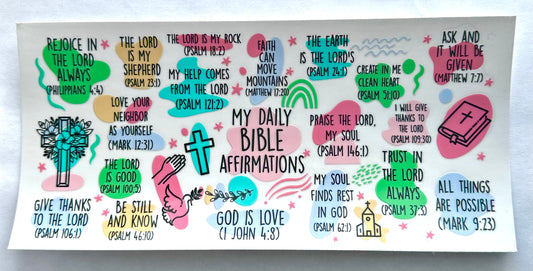 REJOICE IN
THE LORD
ALWAYS
(PHILIPPIANS 4:4)
THE LORD
IS MY
SHEPHERD
(PSALM 23:1)
THE LORD IS MY ROCK
(PSALM 18:2)
FAITH
CAN
MOVE
MOUNTAINS
(MATTHEW 17:20)
THE EARTH
IS THE LORD'S
(PSALM 24:1)
ASK AND
IT WILL BE
GIVEN
(MATTHEW 7:7)
MY HELP COMES
FROM THE LORD
(PSALM 121:2)
CREATE IN ME
CLEAN HEART
(PSALM 51:10)
LOVE YOUR
NEIGHBOR
AS YOURSELF
(MARK 12:31)
MY DAILY
BIBLE
AFFIRMATIONS
PRAISE THE LORD,
MY SOUL
(PSALM 146:1)
I WILL GIVE
THANKS TO
THE LORD
(PSALM 109:30)
THE LORD
IS GOOD
(PSALM 100:5)
TRUST IN
THE LORD
ALWAYS
(PSALM 37:3)
GIVE THANKS
TO THE LORD
(PSALM 106:1)
BE STILL
AND KNOW
(PSALM 46:10)
GOD IS LOVE
(1 JOHN 4:8)
MY SOUL
FINDS REST
IN GOD
(PSALM 62:1)
ALL THINGS
ARE POSSIBLE
(MARK 9:23)